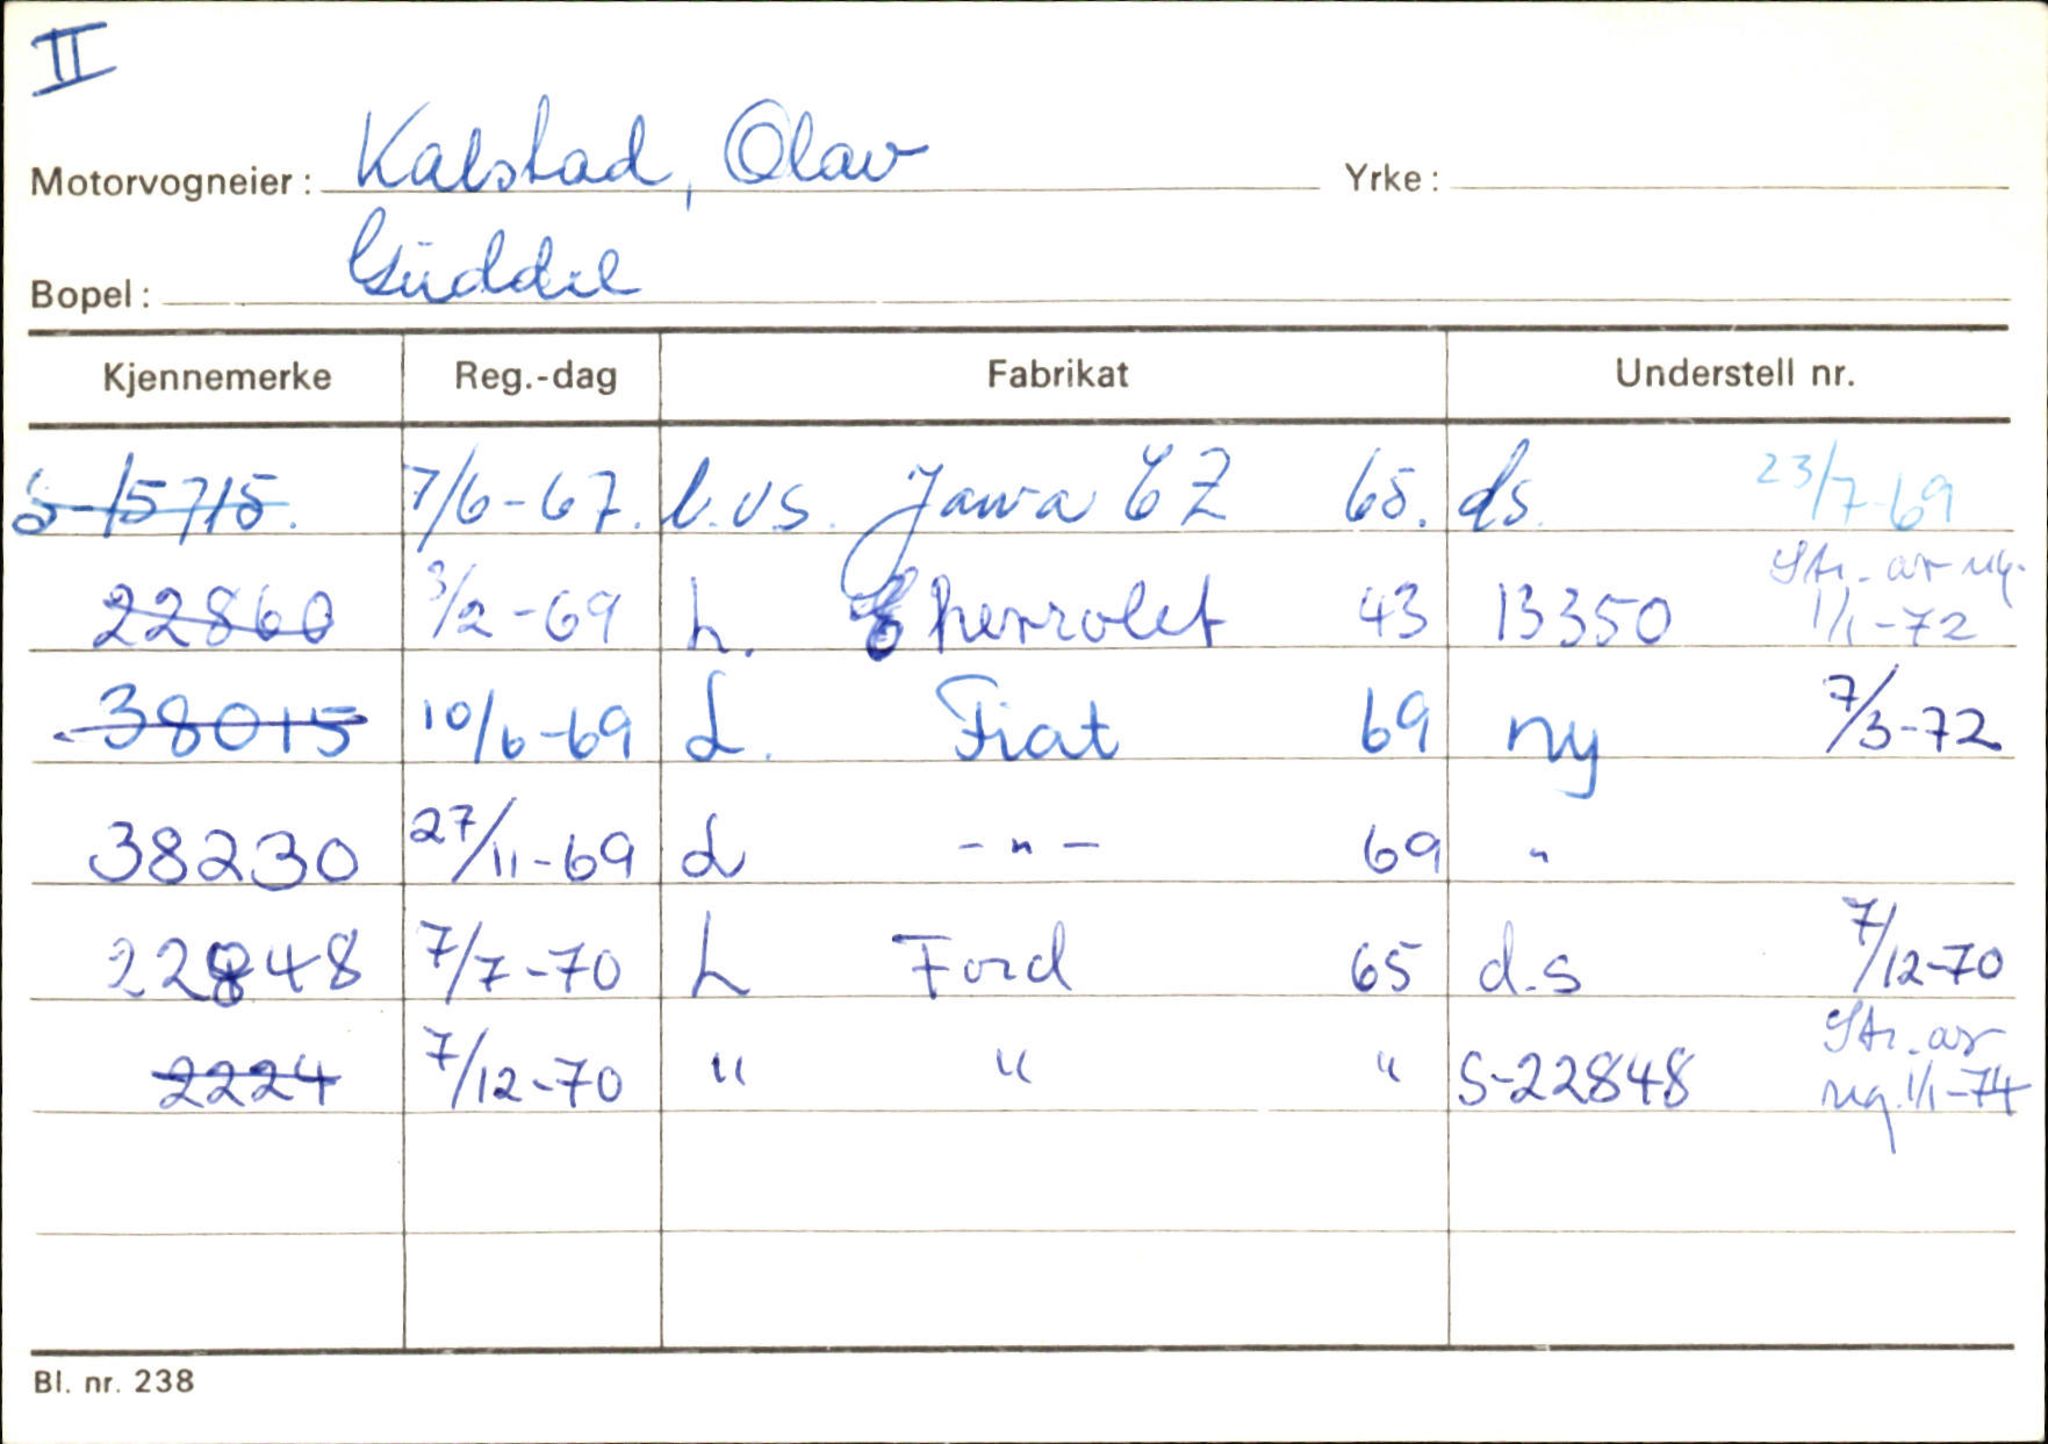 II
Motorvogneier: Kalstad, Olav Yrke:
Bopel: Guddal
Kjennemerke Reg.-dag Fabrikat Understell nr.
S-15715. 7/6-67. l.vs. Jawa CZ 65. ds. 23/7-69
22860 3/2-69 L. Chevrolet 43 13350 Str. av reg. 1/1-72
38015 10/6-69 L. Fiat 69 ny 7/3-72
38230 27/11-69 L -"- 69 "
22848 7/7-70 L Ford 65 d.s 7/12-70
2224 7/12-70 " " " S-22848 Str. av reg. 1/1-74
Bl. nr. 238